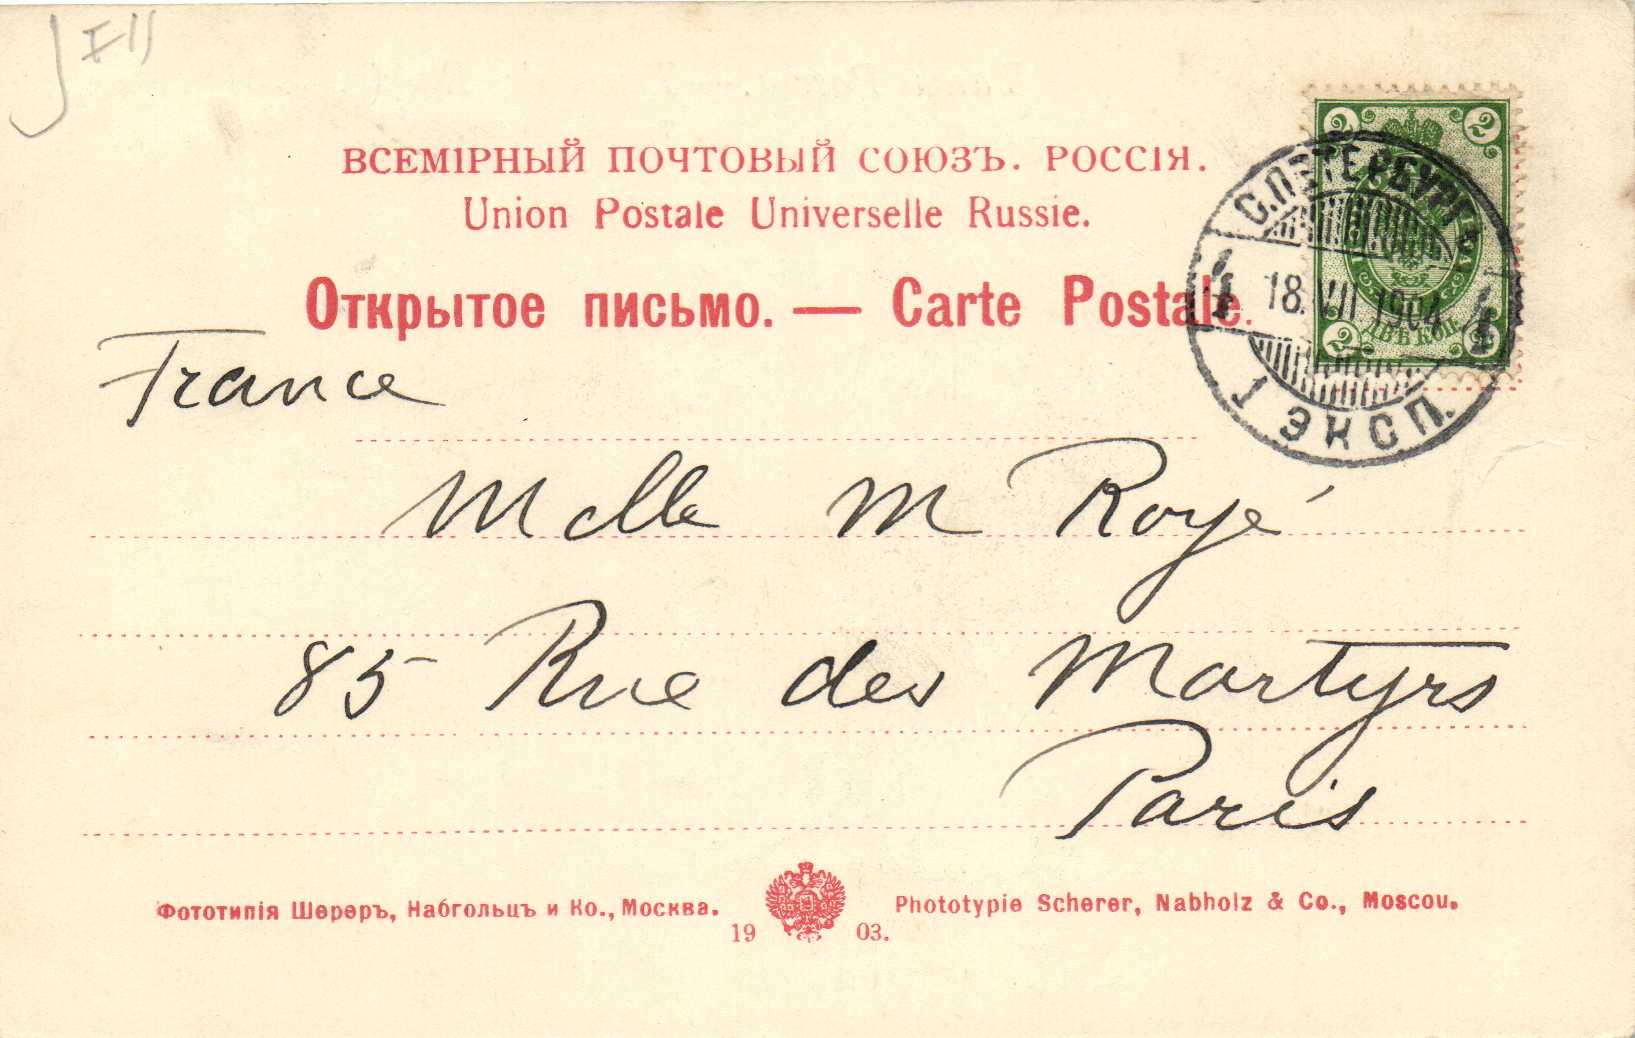 ВСЕМІРНЫЙ ПОЧТОВЫЙ СОЮЗЪ. РОССІЯ.
Union Postale Universelle Russie.
Открытое письмо. — Carte Postale.
2 2
С.ПЕТЕРБУРГ
18.VII 1904
ДВѢ КОП.
2 2
1 ЭКСП.
France
Melle M Royé
85 Rue des Martyrs
Paris
Фототипія Шереръ, Набгольцъ и Ко., Москва.
1903.
Phototypie Scherer, Nabholz & Co., Moscou.